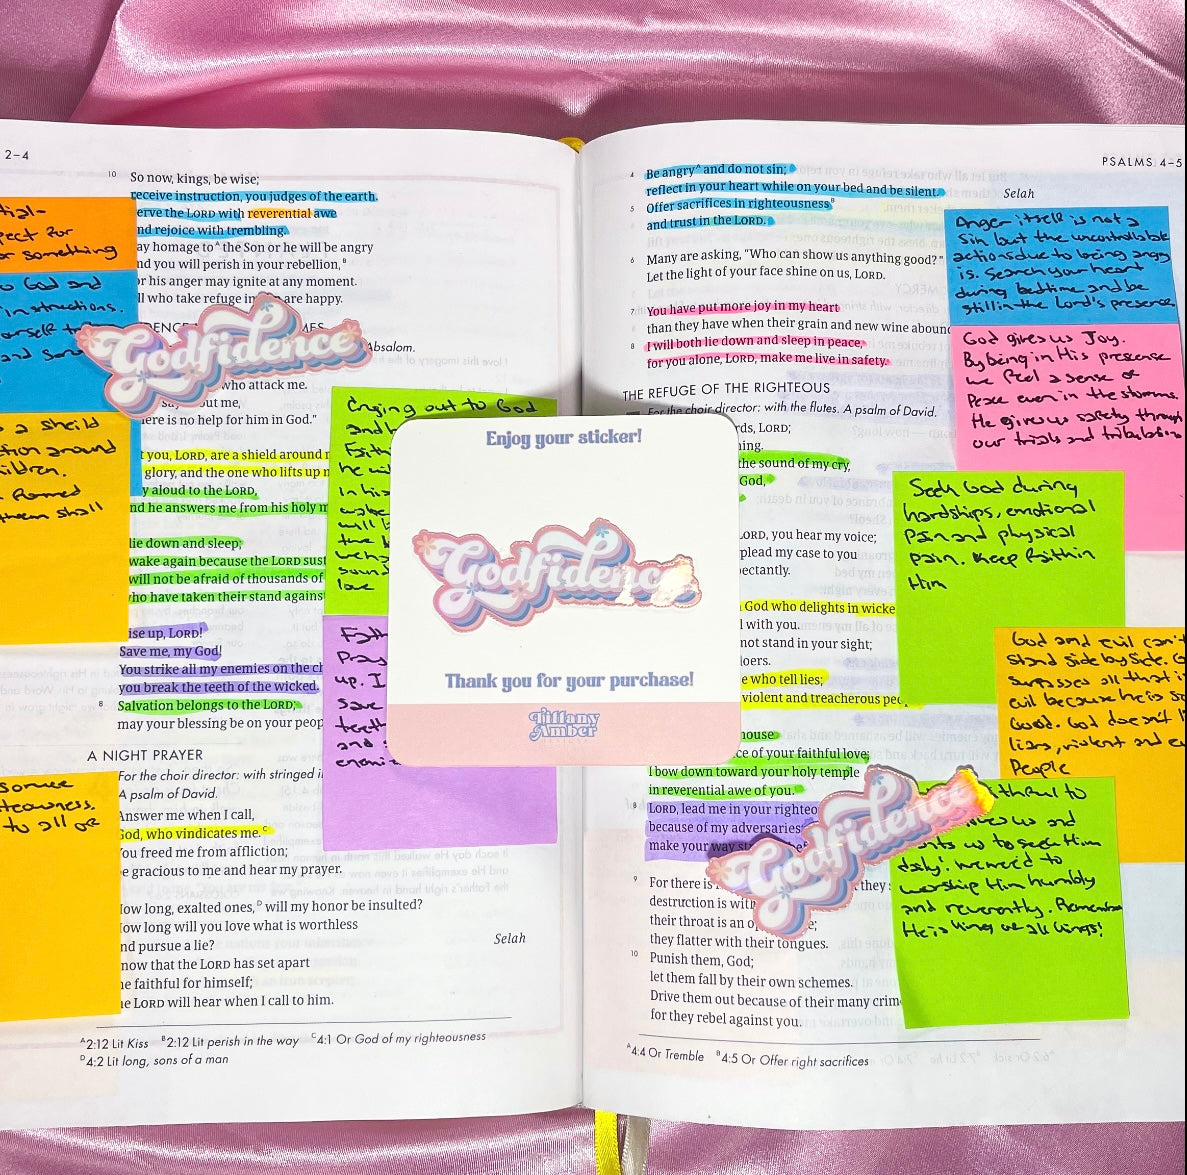 2-4
10 So now, kings, be wise;
receive instruction, you judges of the earth.
erve the LORD with reverential awe
nd rejoice with trembling.
ay homage to^A the Son or he will be angry
nd you will perish in your rebellion,^B
or his anger may ignite at any moment.
ll who take refuge in are happy.
Absalom.
who attack me.
say out me,
ere is no help for him in God."
t you, LORD, are a shield around
glory, and the one who lifts up
y aloud to the LORD,
nd he answers me from his holy
lie down and sleep;
wake again because the LORD sust
will not be afraid of thousands of
ho have taken their stand against
ise up, LORD!
Save me, my God!
You strike all my enemies on the ch
you break the teeth of the wicked.
8 Salvation belongs to the LORD;
may your blessing be on your peop
A NIGHT PRAYER
For the choir director: with stringed i
A psalm of David.
Answer me when I call,
God, who vindicates me.^C
You freed me from affliction;
e gracious to me and hear my prayer.
How long, exalted ones,^D will my honor be insulted?
How long will you love what is worthless
nd pursue a lie?
Selah
now that the LORD has set apart
he faithful for himself;
he LORD will hear when I call to him.
^A2:12 Lit Kiss ^B2:12 Lit perish in the way ^C4:1 Or God of my righteousness
^D4:2 Lit long, sons of a man
tial-
pect for
or something
o God and
instructions.
ourself to
and
a sheild
tion around
ildren.
Romed
them shall
source
teousness.
to all of
Godfidence
Crying out to God
and
Faith
he wi
in his
wake
will b
sound
love
Fath
Pray
up. I
save
teeth
and
enemi
Enjoy your sticker!
Godfidence
Thank you for your purchase!
Tiffany
Amber
PSALMS 4-5
4 Be angry^A and do not sin;
reflect in your heart while on your bed and be silent.
Selah
5 Offer sacrifices in righteousness^B
and trust in the LORD.
6 Many are asking, "Who can show us anything good?"
Let the light of your face shine on us, LORD.
7 You have put more joy in my heart
than they have when their grain and new wine abound
8 I will both lie down and sleep in peace,
for you alone, LORD, make me live in safety.
THE REFUGE OF THE RIGHTEOUS
For the choir director: with the flutes. A psalm of David.
rds, LORD;
ning.
the sound of my cry,
God,
LORD, you hear my voice;
plead my case to you
pectantly.
God who delights in wicke
l with you.
not stand in your sight;
doers.
e who tell lies;
violent and treacherous peo
house
ce of your faithful love;
I bow down toward your holy temple
in reverential awe of you.
8 LORD, lead me in your righteo
because of my adversaries
make your way st
9 For there is they
destruction is with
their throat is an o e;
they flatter with their tongues.
10 Punish them, God;
let them fall by their own schemes.
Drive them out because of their many crim
for they rebel against you.
^A4:4 Or Tremble ^B4:5 Or Offer right sacrifices
Godfidence
Anger itself is not a
sin but the uncontrollable
actions due to being angry
is. Search your heart
during bedtime and be
still in the Lord's presence
God gives us Joy.
By being in His presense
we feel a sense of
Peace even in the storms.
He gives us safety through
our trials and tribulations
Seek God during
hardships, emotional
Pain and physical
pain. Keep faith in
Him
God and evil can't
stand side by side. G
surpasses all that is
evil because he is so
Good. God doesn't l
liars, violent and e
People
thful to
ves us and
nts us to seek Him
daily! We need to
worship Him humbly
and reverently. Remember
He is king of all kings!